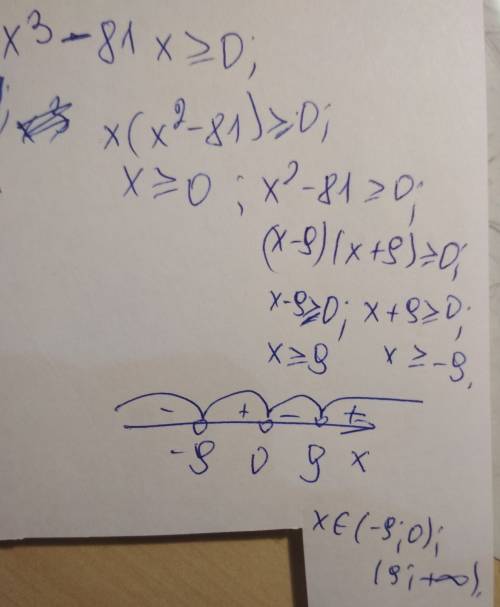 x³ - 81 x ≥ 0;
x(x² - 81) ≥ 0;
x ≥ 0 ; x² - 81 ≥ 0;
(x-9)(x+9) ≥ 0;
x-9 ≥ 0; x+9 ≥ 0;
x ≥ 9 x ≥ -9.
- + - +
-9 0 9 x
x ∈ (-9; 0);
(9; +∞).